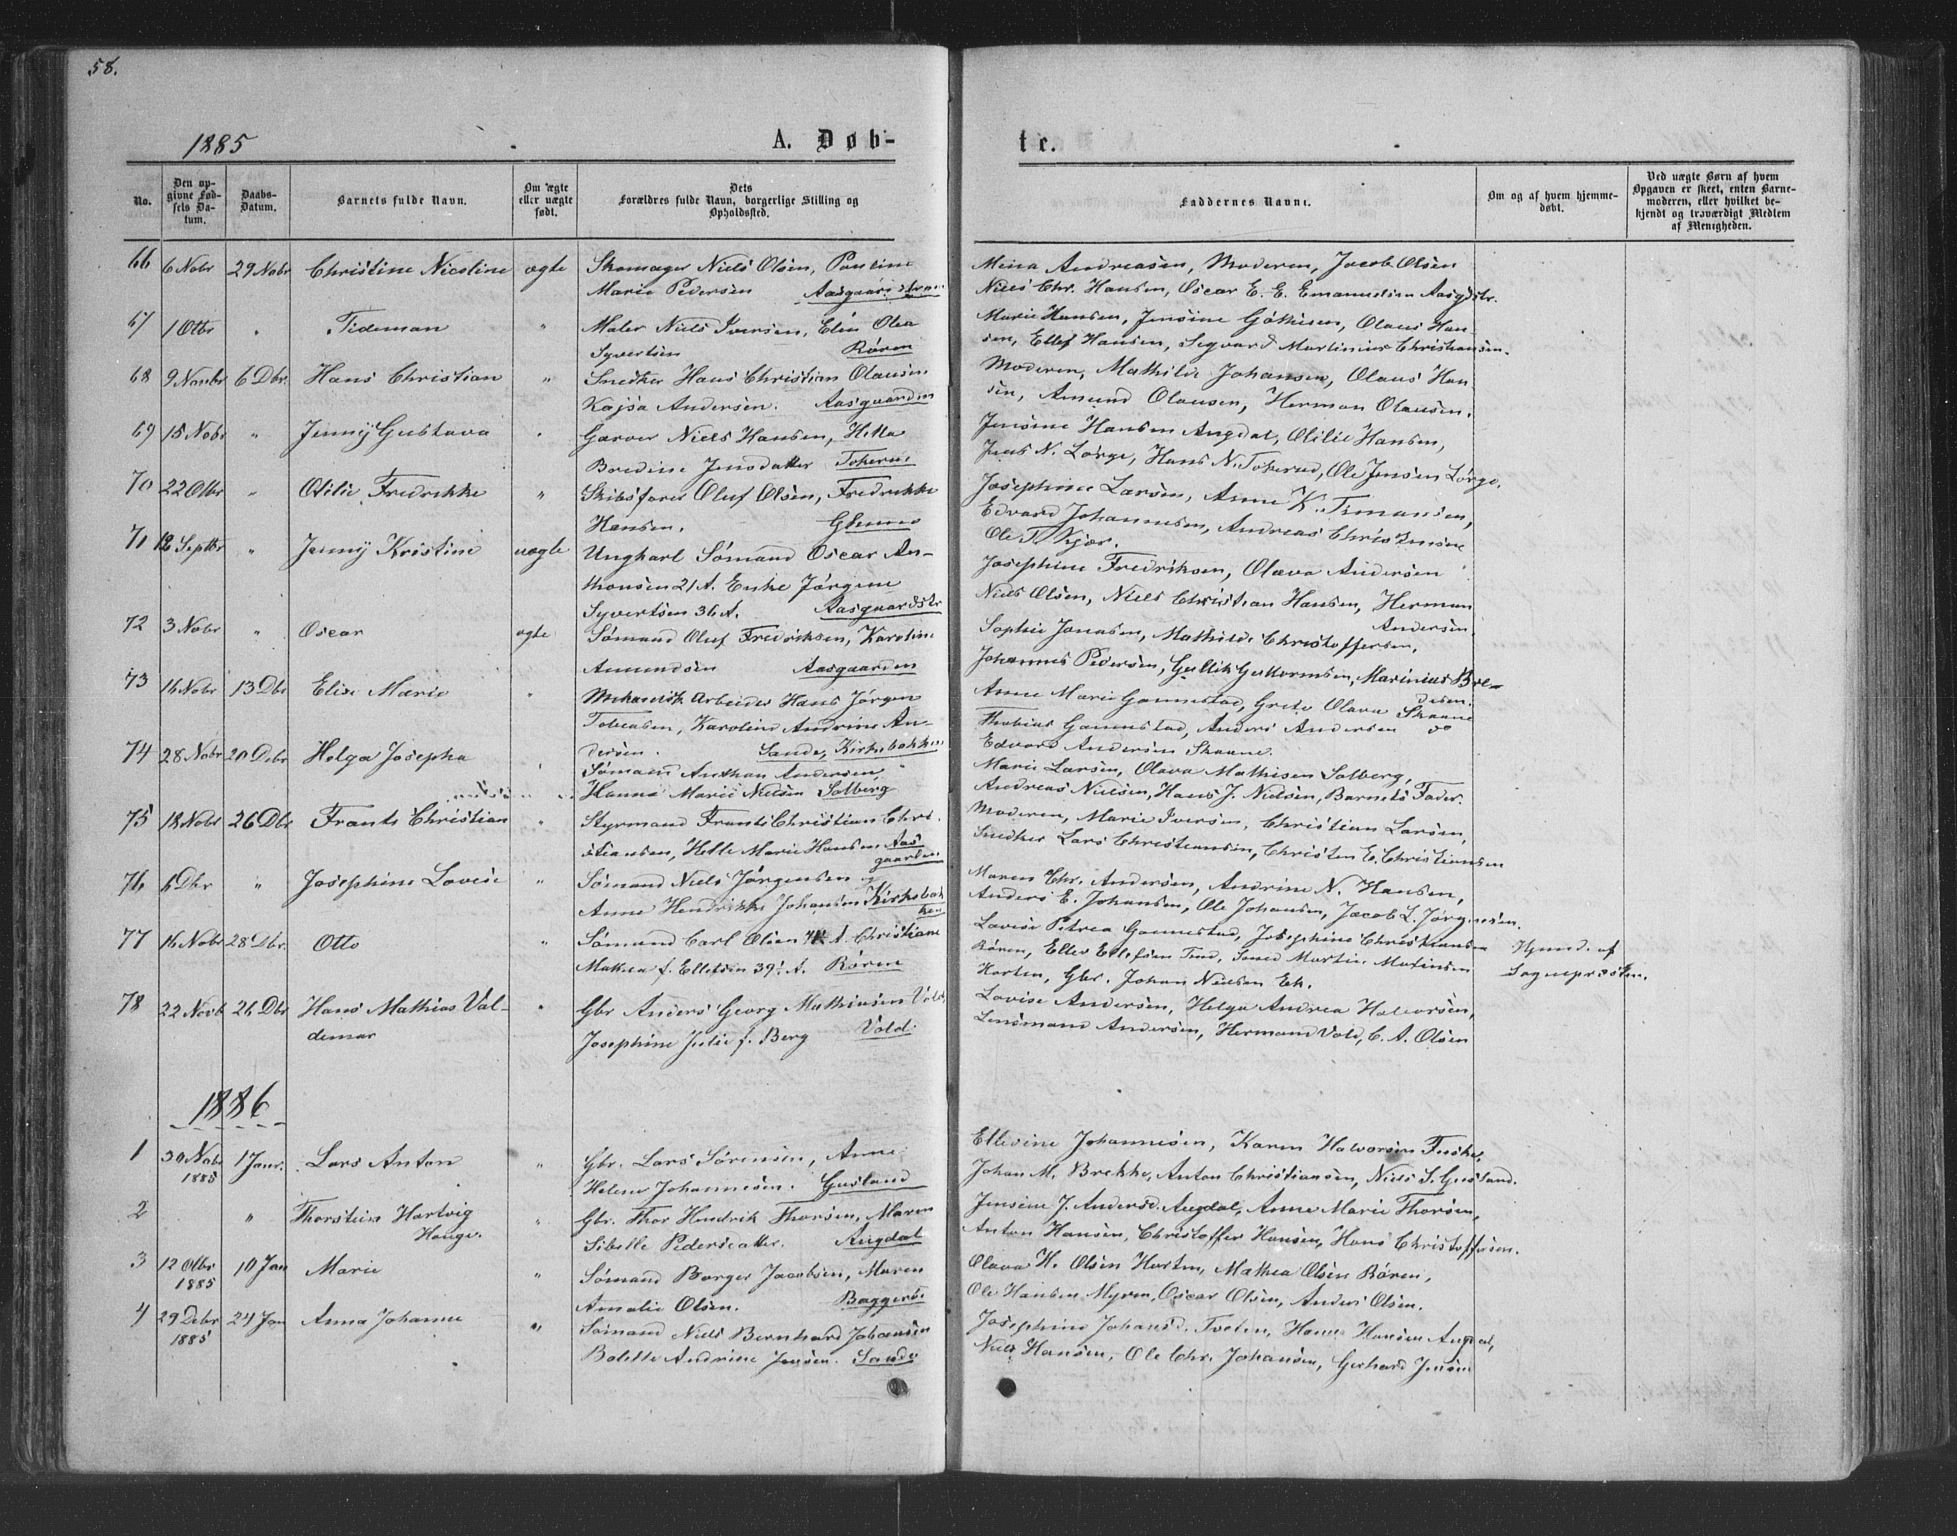 58.
1885
A. Døb-
te.
No.
Den opgivne Fødsels Datum.
Daabs-Datum.
Barnets fulde Navn.
Om ægte eller uægte født.
Dets Forældres fulde Navn, borgerlige Stilling og Opholdssted.
Faddernes Navne.
Om og af hvem hjemmedøbt.
Ved uægte Børn af hvem Opgaven er skeet, enten Barnemoderen, eller hvilket bekjendt og troværdigt Medlem af Menigheden.
66 6 Nobr 29 Nobr Christine Nicoline ægte Skomager Niels Olsen, Pauline
Marie Pedersen Aasgaardstran
Mina Andreasen, Moderen, Jacob Olsen
Niels Chr. Hansen, Oscar E. E. Emanuelsen Aasgdstr.
67 1 Otbr " Tideman " Maler Niels Iversen, Elen Olea
Syvertsen Røren
Marie Hansen, Jensine Gøthesen, Olaus Han-
sen, Ellef Hansen, Segvard Martinius Christiansen.
68 9 Novbr 6 Dbr. Hans Christian " Snedker Hans Christian Olausen
Kajsa Andersen. Aasgaarden
Moderen, Mathilde Johansen, Olaus Han-
sen, Amund Olausen, Herman Olausen.
69 15 Nobr " Jenny Gustava " Garver Niels Hansen, Hella
Bredine Jensdatter Tokerud
Jensine Hansen Augdal, Otilie Hansen,
Jens N. Lørge, Hans N. Tokerud, Ole Jensen Lørge.
70 22 Otbr " Otilie Fredrikke " Skibsfører Oluf Olsen, Fredrikke
Hansen. Glenne
Josephine Larsen, Anne K. Timansen,
Edvard Johannesen, Andreas Christensen
Ole T. Kjær.
71 12 Septbr " Jenny Kristine uægte Ungkarl Sømand Oscar An-
thonsen 21 A. Enke Jørgine
Syvertsen 36 A. Aasgaardstr
Josephine Fredriksen, Olava Andersen
Niels Olsen, Niels Christian Hansen, Herman
Andersen.
72 3 Nobr " Oscar ægte Sømand Oluf Fredriksen, Karoline
Amundsen Aasgaarden
Sophie Jonasen, Mathilde Christoffersen,
Johannes Pedersen, Gullik Guttormsen, Marinius Bre-
desen.
73 16 Nobr 13 Dbr Elise Marie " Mekanisk Arbeider Hans Jørgen
Tobiasen, Karoline Andrine An-
dersen. Sande, Kirkebakken
Anne Marie Gannestad, Grete Olava Skaane
Thobias Gannestad, Anders Andersen do
Edvard Andersen Skaane.
74 28 Nobr 20 Debr Helga Josepha " Sømand Anthon Andersen,
Hanna Marie Nielsen Solberg
Marie Larsen, Olava Mathisen Solberg,
Andreas Nielsen, Hans J. Nielsen, Barnets Fader.
75 18 Nobr 26 Dbr Frants Christian " Styrmand Frants Christian Chri-
stiansen, Helle Marie Hansen Aas-
gaarden
Moderen, Marie Iversen, Christian Larsen,
Snedker Lars Christiansen, Christen E. Christiansen
76 6 Dbr " Josephine Lovise " Sømand Niels Jørgensen
Anne Hendrikke Johansen Kirkebak-
ken
Maren Chr. Andersen, Andrine N. Hansen,
Anders E. Johansen, Ole Johansen, Jacob L. Jørgensen.
77 16 Nobr 28 Dbr. Otto " Sømand Carl Olsen A. Christiane
Mathea f. Ellefsen 39½ A. Røren
Lovise Petrea Gannestad, Josephine Christiansen
Røren, Ellev Ellefsen Martin
Horten, Gbr. Johan Nielsen Ek.
Hjmd. af
Sognepræsten.
78 22 Novb 26 Dbr Hans Mathias Val-
demar
" Gbr Anders Georg Mathiasen Vold
Josephine Julie f. Berg Vold.
Lovise Andersen, Helga Andrea Halvorsen,
Lensmand Andersen, Hermand Vold, C. A. Olsen
1886
1 30 Nobr 1885 1 Janr. Lars Anton " Gbr. Lars Sørensen, Anne
Helene Johannesen. Gusland
Ellevine Johannesen, Karen Halvorsen
Johan M. Brekke, Anton Christiansen, Niels S. Gusland.
2 " Thorstein Hartvig
Hauge.
" Gbr. Thor Hendrik Thorsen, Maren
Sibelle Pedersdatter. Augdal
Jensine J. Andersd. Augdal, Anne Marie Thorsen,
Anton Hansen, Christoffer Hansen, Hans Christoffersen.
3 12 Otbr 1885 10 Jan Marie " Sømand Borger Jacobsen, Maren
Amalie Olsen. Baggerød
Olava H. Olsen Horten, Mathea Olsen Røren,
Ole Hansen Myren, Oscar Olsen, Anders Olsen.
4 29 Debr 1885 24 Jan Anna Johanne " Sømand Niels Bernhard Johansen
Bolette Andrine Jensen. Sande
Josephine Johansd. Tveten, Hanna Hansen Augdal,
Niels Hansen, Ole Chr. Johansen, Gerhard Jensen